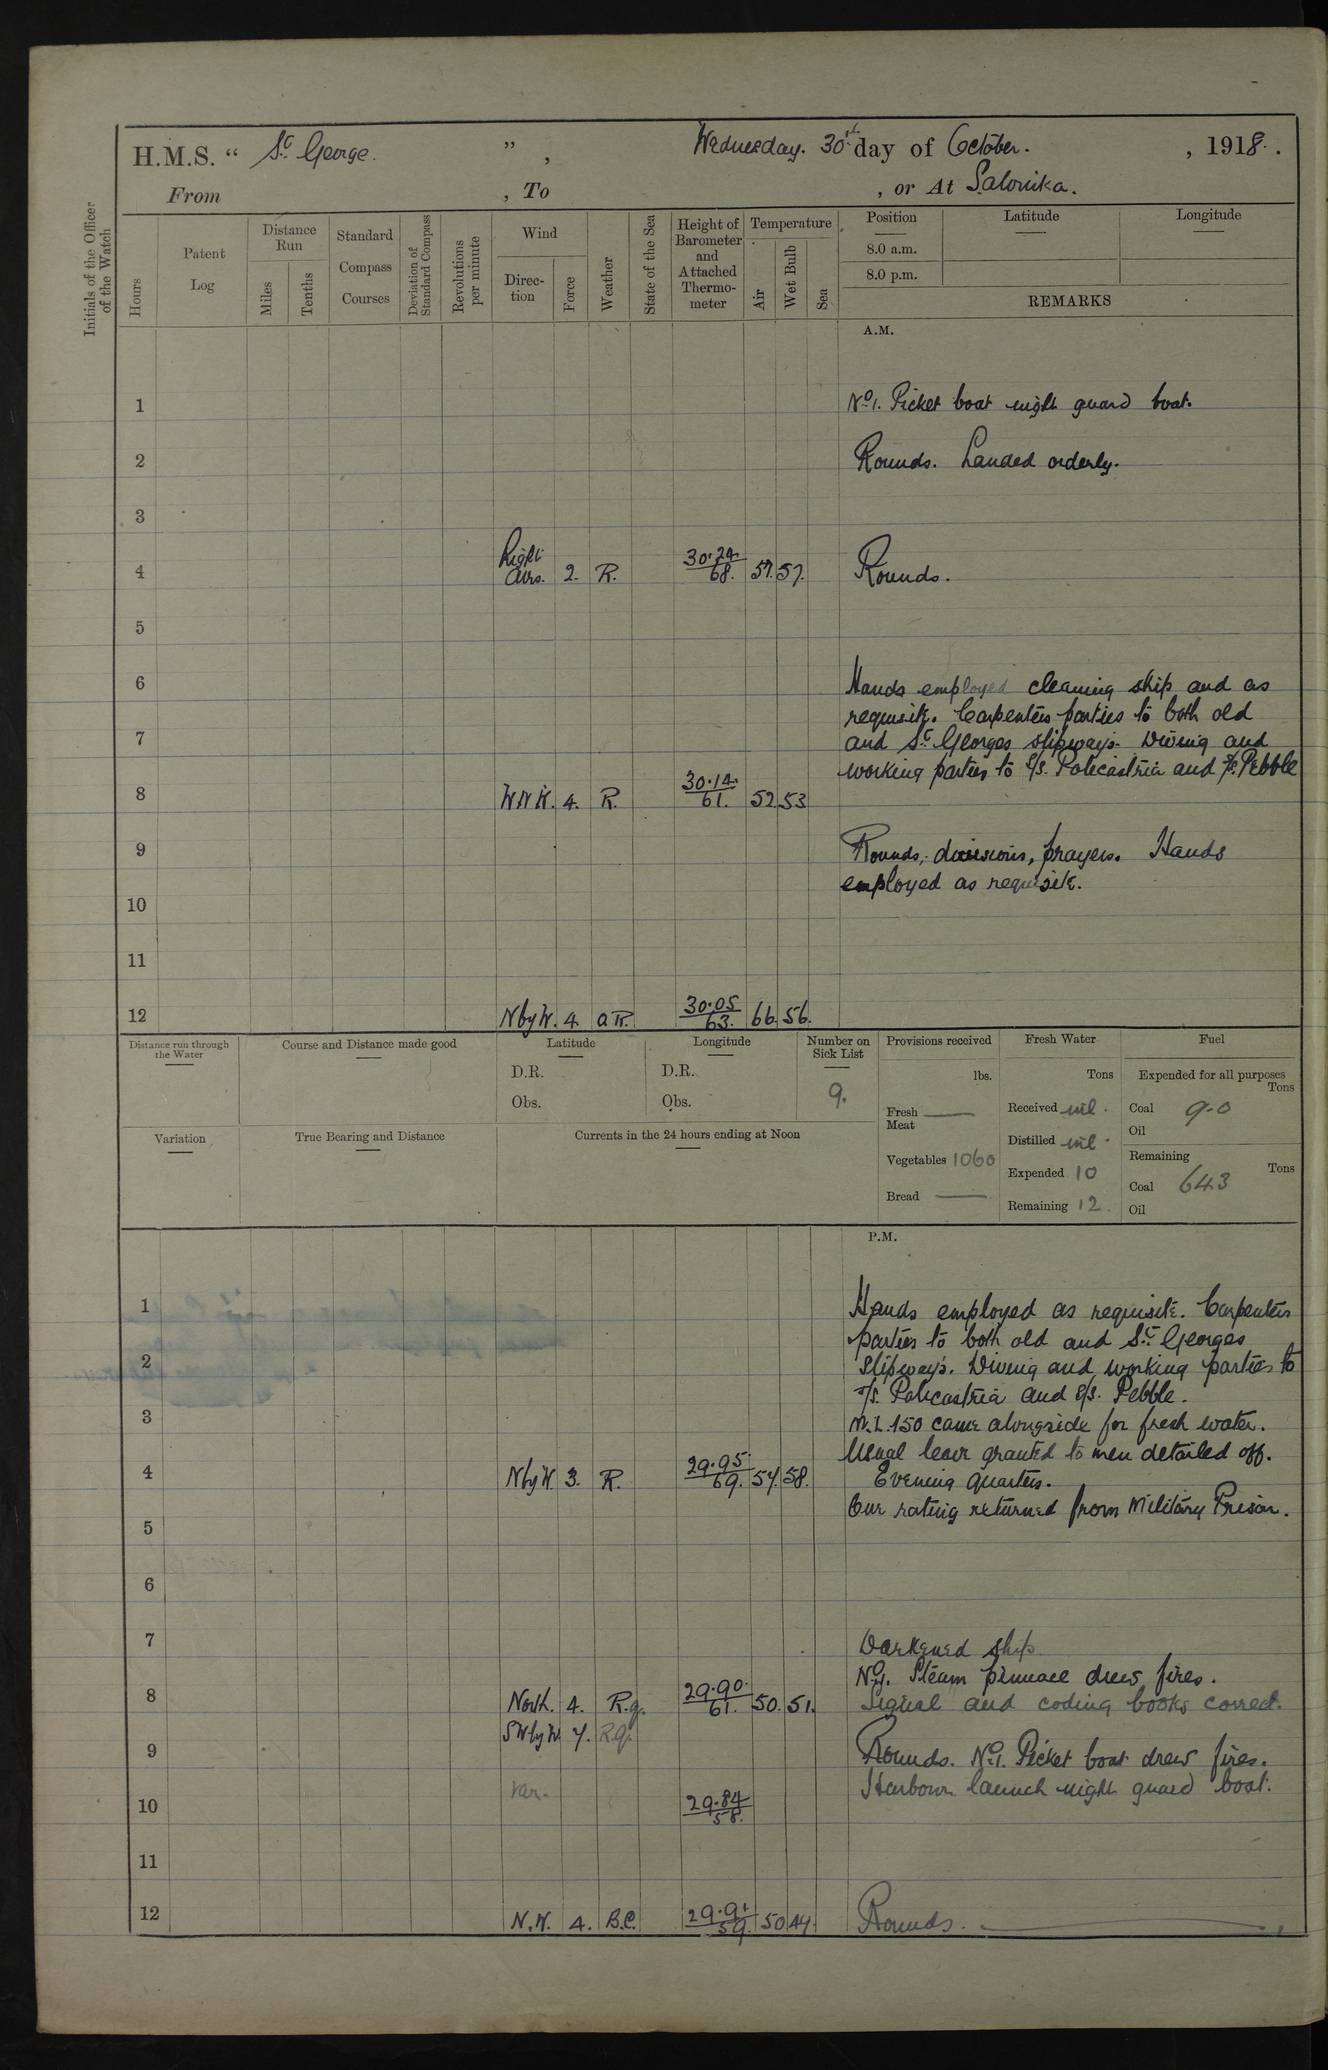 H.M.S. “ St. George. ” , Wednesday. 30th day of October. , 1918.
From , To , or At Salonika.
Initials of the Officer of the Watch
Hours
Patent Log
Distance Run
Miles
Tenths
Standard Compass Courses
Deviation of Standard Compass
Revolutions per minute
Wind
Direc-tion
Force
Weather
State of the Sea
Height of Barometer and Attached Thermo-meter
Temperature
Air
Wet Bulb
Sea
Position
8.0 a.m.
8.0 p.m.
Latitude
Longitude
REMARKS
A.M.
1 No. 1. Picket boat night guard boat.
2 Rounds. Landed orderly.
3
4 Light airs. 2. R. 30.24 68. 57. 57. Rounds.
5
6 Hands employed cleaning ship and as
requisite. Carpenters parties to both old
7 and St. Georges slipways. Diving and
working parties to S/s. Policastria and S/s. Pebble
8 WNW. 4. R. 30.14. 61. 52. 53
9 Rounds, divisions, prayers. Hands
employed as requisite.
10
11
12 N by W. 4. aR. 30.05 63. 66. 56.
Distance run through the Water
Course and Distance made good
Latitude
D.R.
Obs.
Longitude
D.R.
Obs.
Number on Sick List
9.
Provisions received
lbs.
Fresh Meat ——
Vegetables 1060
Bread ——
Fresh Water
Tons
Received nil.
Distilled nil.
Expended 10
Remaining 12.
Fuel
Expended for all purposes
Tons
Coal 9.0
Oil
Remaining
Tons
Coal 643
Oil
Variation
True Bearing and Distance
Currents in the 24 hours ending at Noon
P.M.
1 Hands employed as requisite. Carpenters
parties to both old and St. Georges
2 slipways. Diving and working parties to
S/s. Policastria and S/s. Pebble.
3 M.L. 150 came alongside for fresh water.
Usual leave granted to men detailed off.
4 N by W. 3. R. 29.95 69. 57. 58. Evening quarters.
One rating returned from Military Prison.
5
6
7 Darkened ship
No. 1. Steam pinnace drew fires.
8 North. 4. R.q. 29.90. 61. 50. 51. Signal and coding books correct.
SW by W. 7. R.q.
9 Rounds. No. 1. Picket boat drew fires.
Var. Harbour launch night guard boat.
10 29.84 58.
11
12 N.W. 4. B.C. 29.91 59. 50 44. Rounds.